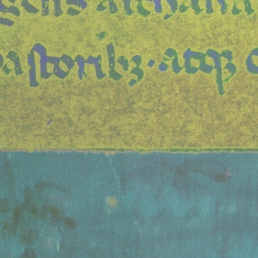 gelis archana
pastoribꝫ · atqꝫ